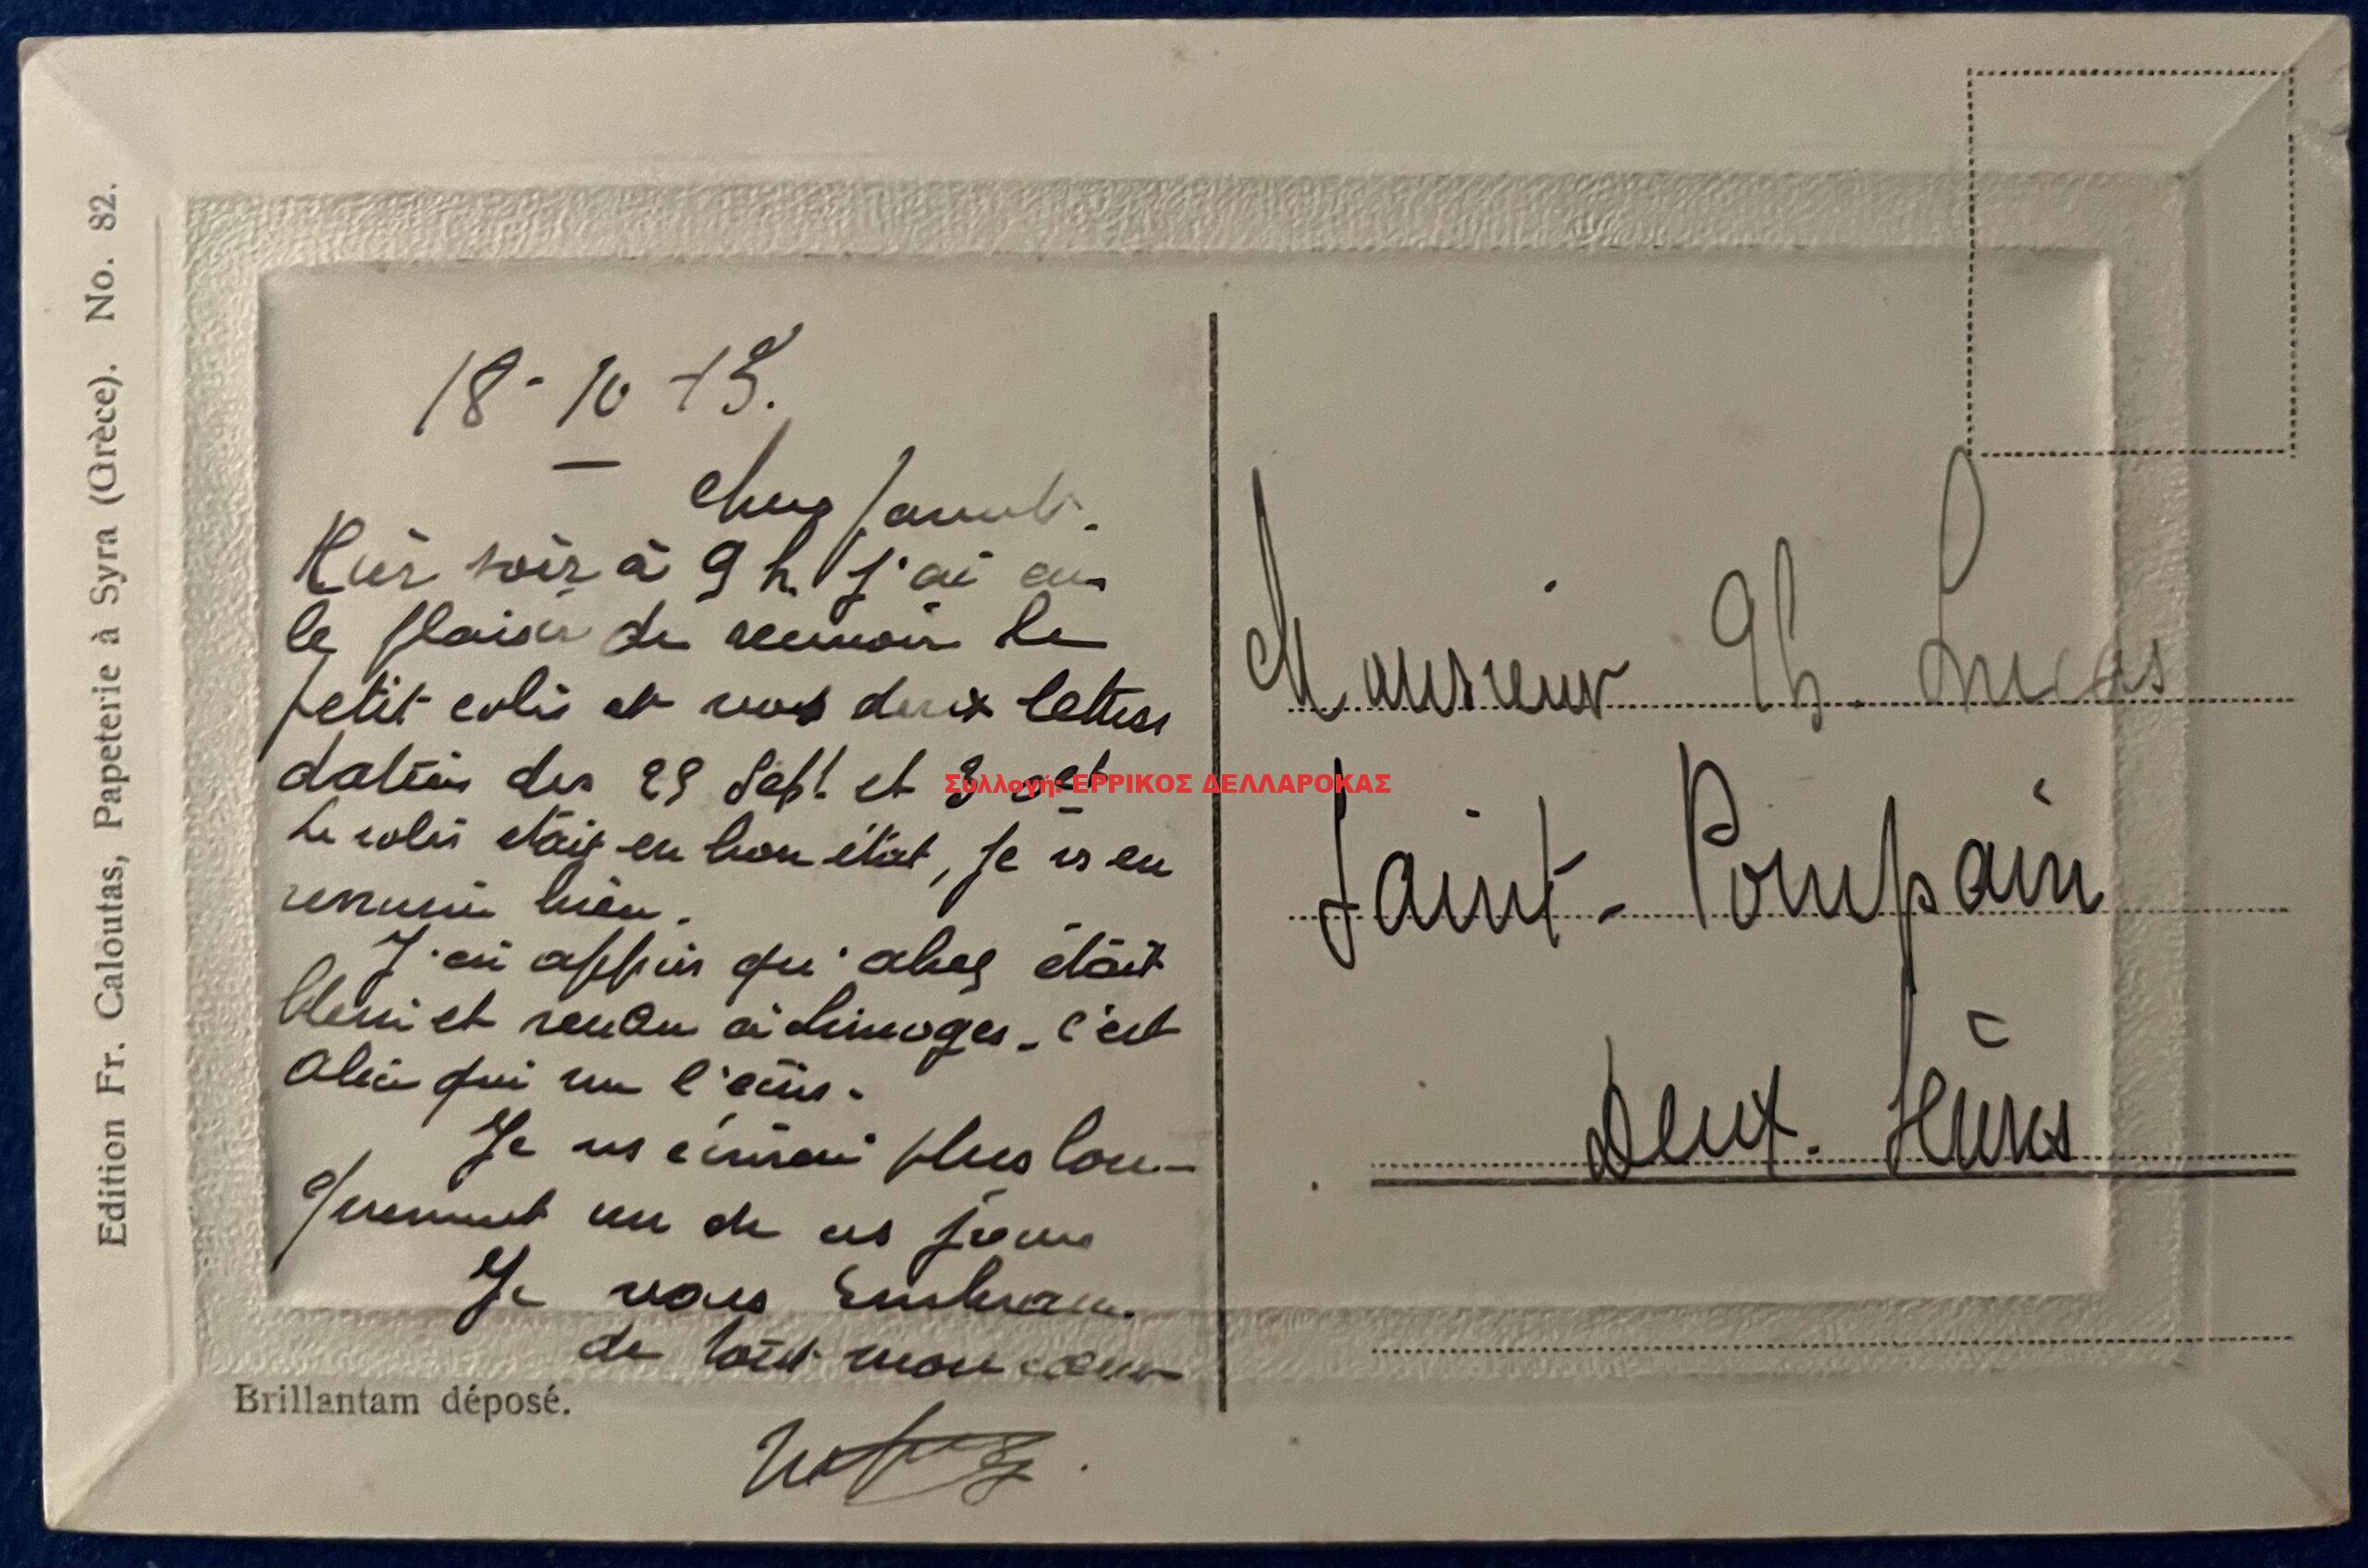 Edition Fr. Caloutas, Papeterie à Syra (Grèce). No. 82.
18-10
Hier soir à 9 h. j'ai eu
le plaisir de recevoir le
petit colis et vos deux lettres
datées des 29 Sept. et 3 oct
Le colis était en bon état, je vs en
remercie bien.
J'ai appris qu' était
et rendu à Limoges. c'est
qui me l'écris.
Je vs écrirai plus lon-
guement un de ces jours
Je vous Embrasse
de tout mon cœur
Brillantam déposé.
Monsieur Th. Lucas
Saint-Pompain
Deux-Sèvres
Συλλογή: ΕΡΡΙΚΟΣ ΔΕΛΛΑΡΟΚΑΣ